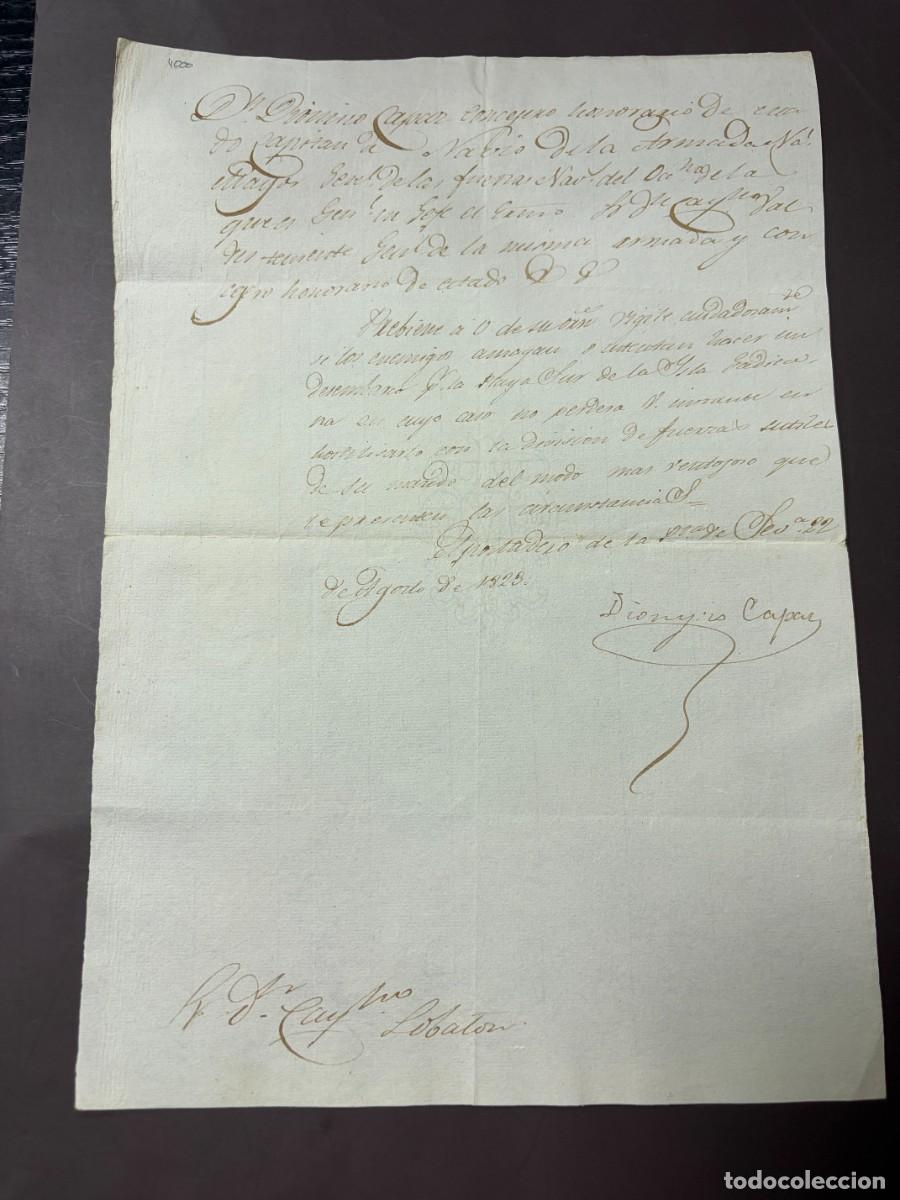 4000
Dn. Dionisio Capaz consejero honorario de esta
do Capitan de Navio de la Armada Nal.
Mayor Genl. de las fuerzas Navs. del Ocno. de la
que es Genl. en Gefe el Exmo. Sr. Dn. Cayno. Val
des teniente Genl. de la misma armada y con
cegro honorario de estado &. &.
Prebiene a V de su orn. vigile cuidadosamte.
si los enemigos amagan o intentan hacer un
desembarco pr. la Playa Sur de la Ysla Gadita
na en cuyo caso no perdera V. instante en
hostilisarlo con la division de fuerzas sutiles
de su mando del modo mas ventajoso que
le presenten las circunstancias =
Apostadero de la de 22
de Agosto de 1823.
Dionysio Capaz
Sr. Dn. Cayno. Lobaton
todocoleccion